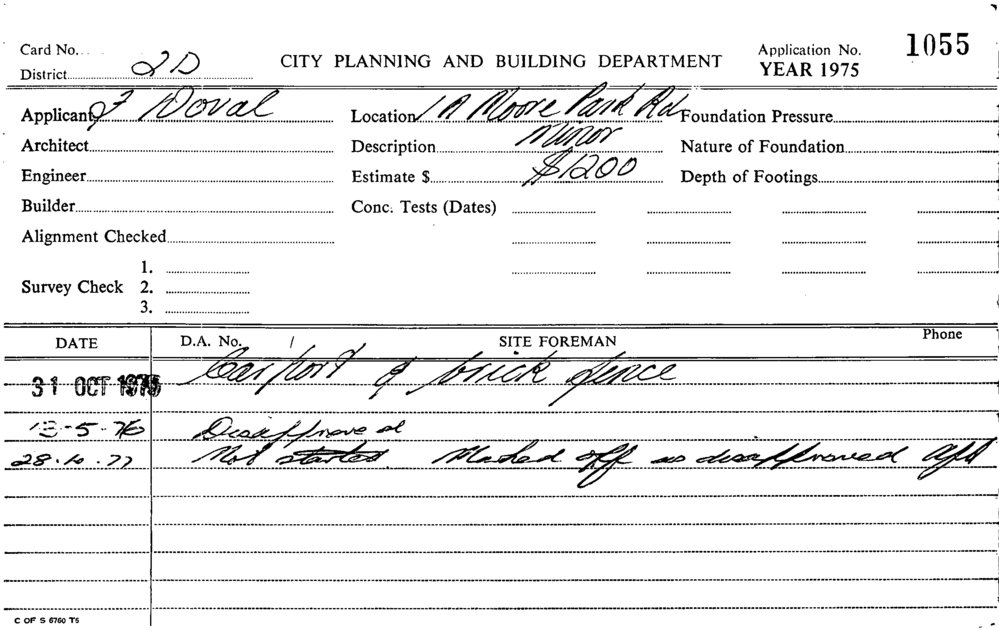 Card No.
District 2D
CITY PLANNING AND BUILDING DEPARTMENT
Application No. 1055
YEAR 1975
Applicant J Doval
Location 1A Moore Park Rd
Foundation Pressure
Architect
Description Minor
Nature of Foundation
Engineer
Estimate $ $1200
Depth of Footings
Builder
Conc. Tests (Dates)
Alignment Checked
1.
Survey Check 2.
3.
DATE D.A. No. SITE FOREMAN Phone
31 OCT 1975 Carport & brick fence
13-5-76 Disapproved
28.10.77 Not started Marked off as disapproved
C OF S 6760 T5